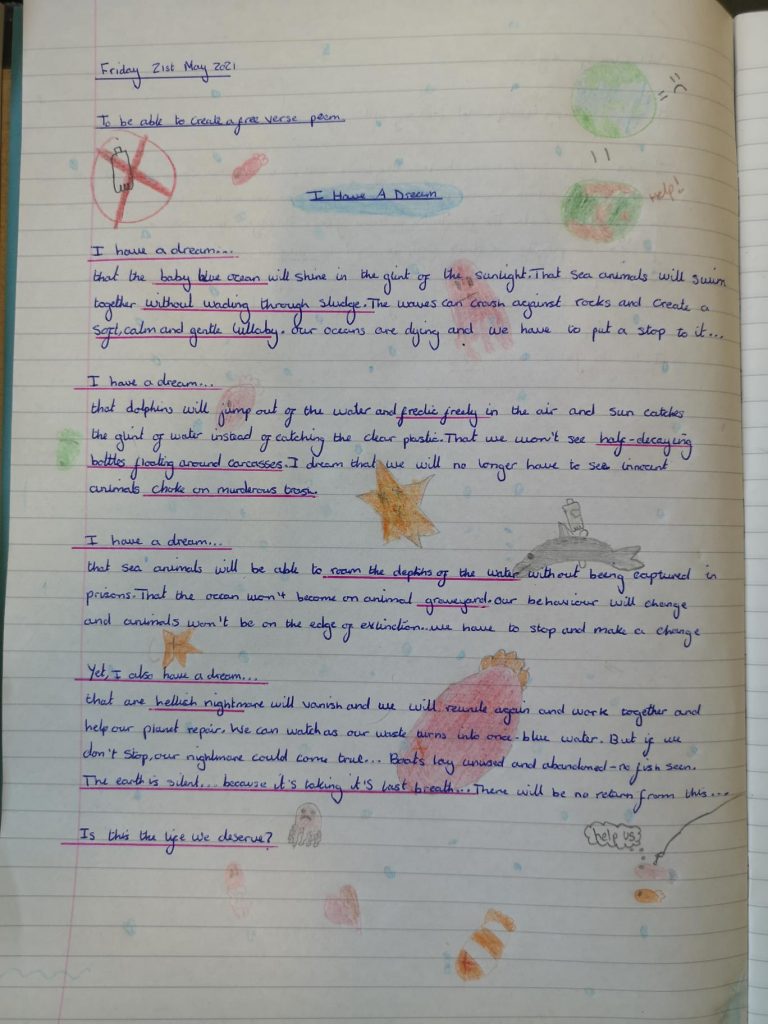 Friday 21st May 2021
To be able to create a free verse poem.
Help!
I Have A Dream
I have a dream...
that the baby blue ocean will shine in the glint of the sunlight. That sea animals will swim
together without wading through sludge. The waves can crash against rocks and create a
soft, calm and gentle lullaby. Our oceans are dying and we have to put a stop to it...
I have a dream...
that dolphins will jump out of the water and freely in the air and sun catches
the glint of water instead of catching the clear plastic. That we won't see half-decaying
bottles floating around carcasses. I dream that we will no longer have to see innocent
animals choke on murderous trash.
I have a dream...
that sea animals will be able to roam the depths of the water without being captured in
prisons. That the ocean won't become an animal graveyard. Our behaviour will change
and animals won't be on the edge of extinction... we have to stop and make a change
Yet, I also have a dream...
that are hellish nightmare will vanish and we will reunite again and work together and
help our planet repair. We can watch as our waste turns into once-blue water. But if we
don't stop, our nightmare could come true... Boats lay unused and abandoned - no fish seen.
The earth is silent... because it's taking it's last breath... There will be no return from this...
Is this the life we deserve?
help us